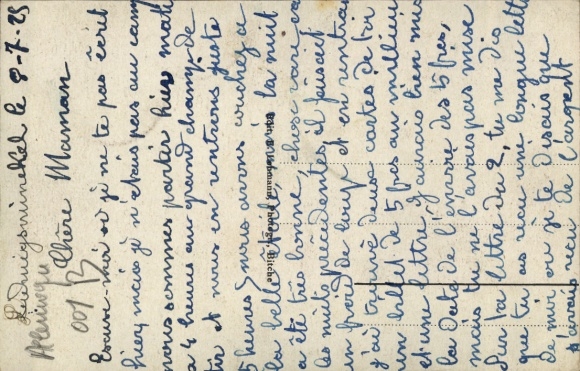 Ludwigswinkel le 8-7-25
Chère Maman
Excuse-moi si je ne te pas écrit
hier, mais je n'étais pas au camp
nous sommes partis hier mat
à 4 heures au grand champ de
tir et nous en rentrons juste
5 heures) nous avons couchez a
la belle la nuit
a été très bonne, chose rare ca
les nuits précédentes il faisait
un froid de loup, et en rentran
j'ai trouvé deux cartes de toi
un billet de 5 frs au millieu
et une lettre, j'aurais bien mis
la date de l'encre des 5 frs,
mais tu ne l'avais pas mise
Sur ta lettre du 2, tu me dis
que tu as reçu une longue lett
de moi où je te disais que
j'avais reçu de l'argent
Photogr. Bitche
001 B